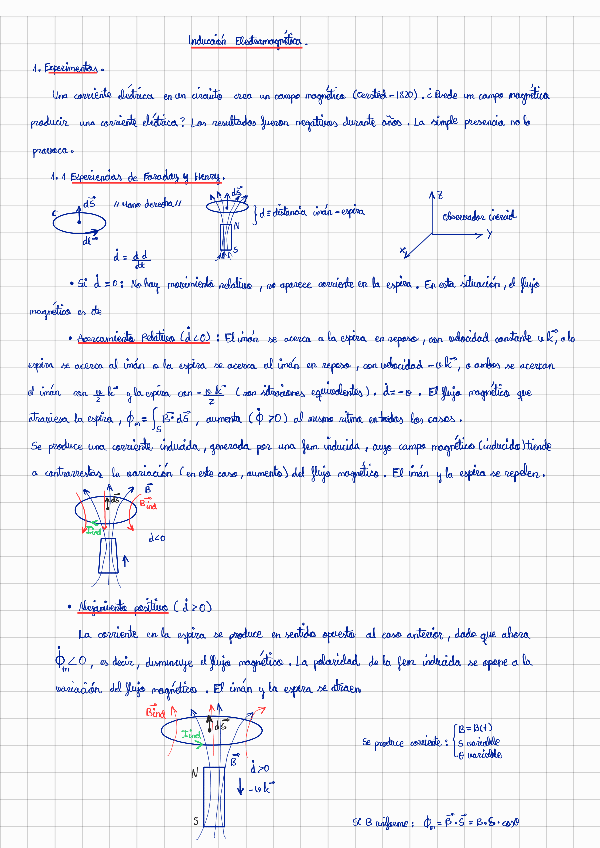 Inducción Electromagnética.
1. Experimentos.
Una corriente eléctrica en un circuito crea un campo magnético (Oersted - 1820). ¿Puede un campo magnético
producir una corriente eléctrica? Los resultados fueron negativos durante años. La simple presencia no lo
provoca.
1.1 Experiencias de Faraday y Henry.
C dS⃗ dl⃗ "Mano derecha"
dS⃗ N S } d ≡ distancia imán-espira
Z Y X Observador inercial
ḋ = d d / dt
• Si ḋ = 0: No hay movimiento relativo, no aparece corriente en la espira. En esta situación, el flujo
magnético es cte
• Acercamiento Relativo (ḋ < 0): El imán se acerca a la espira en reposo, con velocidad constante v k⃗, o la
espira se acerca al imán o la espira se acerca al imán en reposo, con velocidad -v k⃗, o ambos se acercan
el imán con v/2 k⃗ y la espira con -v/2 k⃗ (son situaciones equivalentes). ḋ = -v. El flujo magnético que
atraviesa la espira, ϕm = ∫S B⃗·dS⃗, aumenta (ϕ̇ > 0) al mismo ritmo en todos los casos.
Se produce una corriente inducida, generada por una fem inducida, cuyo campo magnético (inducido) tiende
a contrarrestar la variación (en este caso, aumento) del flujo magnético. El imán y la espira se repelen.
B⃗
dS⃗
B⃗ind
Iind
ḋ<0
• Alejamiento positivo (ḋ > 0)
La corriente en la espira se produce en sentido opuesto al caso anterior, dado que ahora
ϕ̇m < 0, es decir, disminuye el flujo magnético. La polaridad de la fem inducida se opone a la
variación del flujo magnético. El imán y la espira se atraen
B⃗ind
dS⃗
Iind
B⃗
N
ḋ>0
-v k⃗
S
Se produce corriente: { B = B(t)
S variable
θ variable
Si B uniforme: ϕm = B⃗·S⃗ = B·S·cosθ